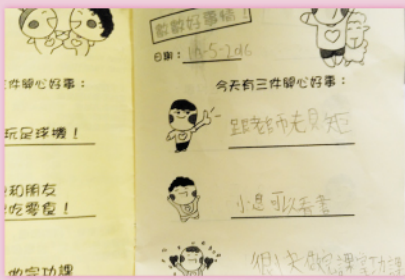 三件開心好事：
玩足球機！
和朋友
吃零食！
做完功課
數數好事情！
日期：16-5-2016
今天有三件開心好事：
跟老師去見
小息可以看書
很快